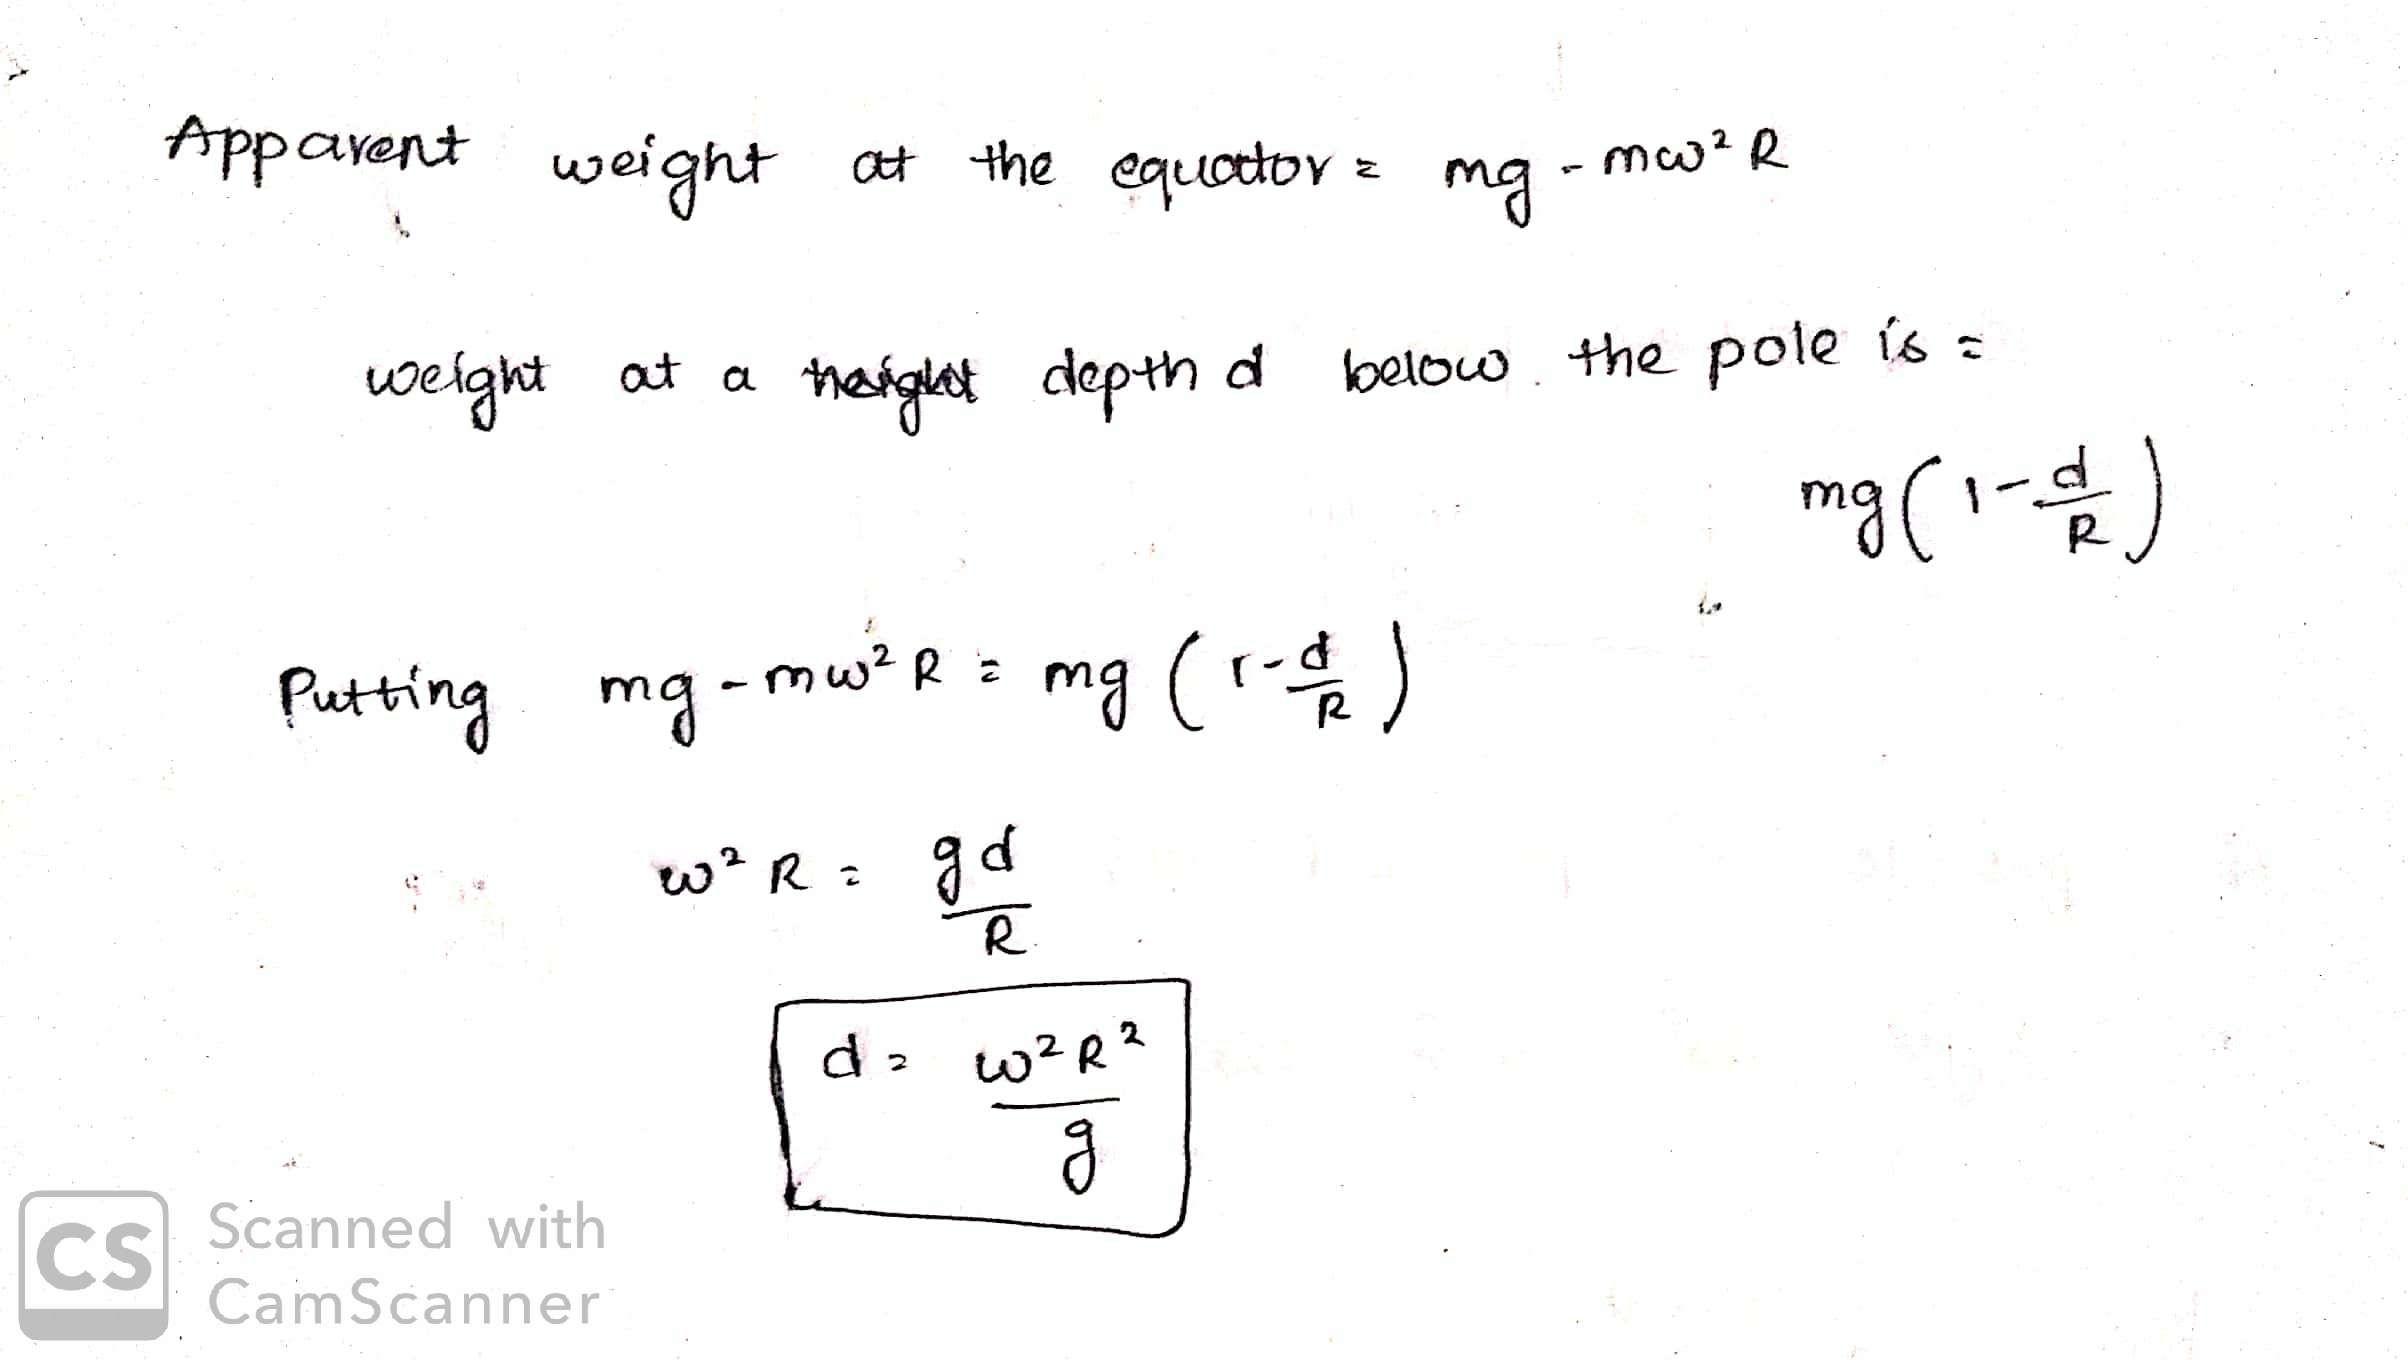 Apparent weight at the equator = mg - mω² R
weight at a height depth d below the pole is =
mg(1-d/R)
Putting mg - mω² R = mg (1-d/R)
ω² R = gd/R
d = ω² R²/g
CS Scanned with
CamScanner